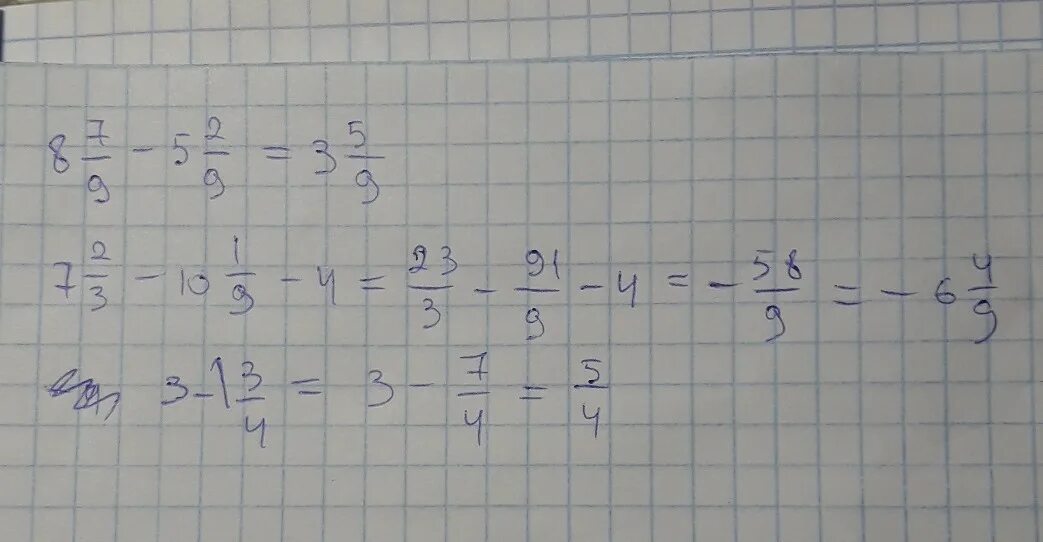 8 7/9 - 5 2/9 = 3 5/9
7 2/3 - 10 1/9 - 4 = 23/3 - 91/9 - 4 = - 58/9 = - 6 4/9
3 - 1 3/4 = 3 - 7/4 = 5/4